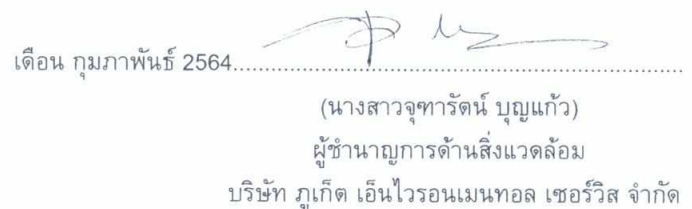 เดือน กุมภาพันธ์ 2564......................................................................
(นางสาวจุฑารัตน์ บุญแก้ว)
ผู้ชำนาญการด้านสิ่งแวดล้อม
บริษัท ภูเก็ต เอ็นไวรอนเมนทอล เซอร์วิส จำกัด